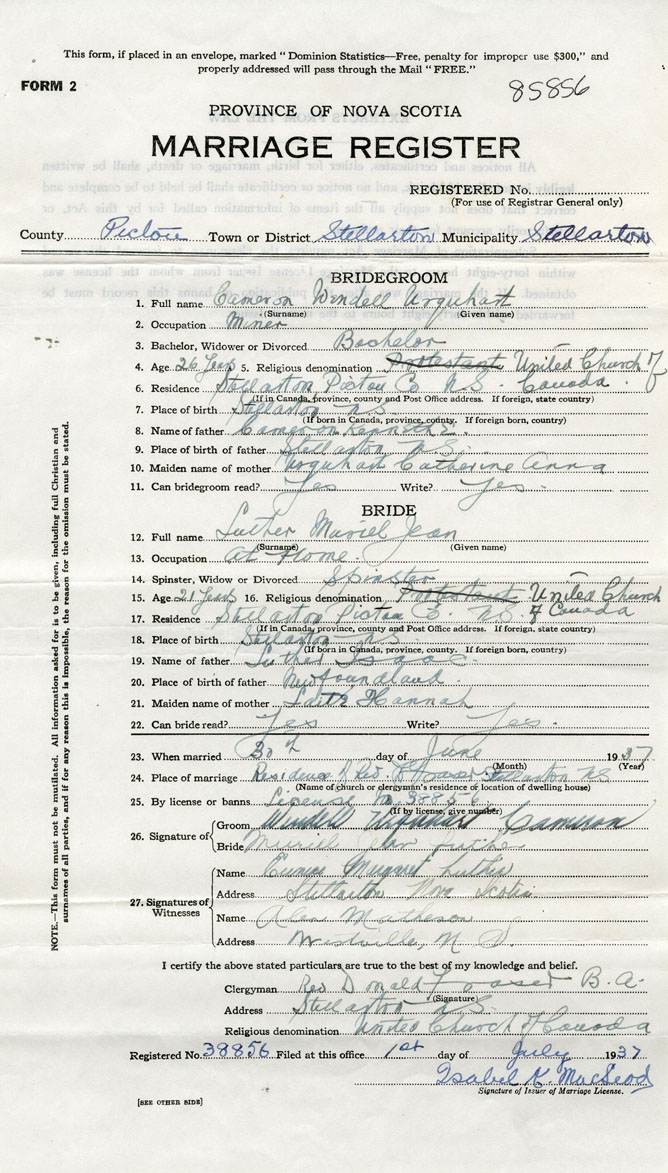 This form, if placed in an envelope, marked "Dominion Statistics—Free, penalty for improper use $300," and
properly addressed will pass through the Mail "FREE."
FORM 2
85856
PROVINCE OF NOVA SCOTIA
MARRIAGE REGISTER
REGISTERED No.
(For use of Registrar General only)
County Pictou Town or District Stellarton Municipality Stellarton
BRIDEGROOM
1. Full name Cameron Wendell Urquhart
(Surname) (Given name)
2. Occupation Miner
3. Bachelor, Widower or Divorced Bachelor
4. Age 26 Years 5. Religious denomination Protestant United Church of
Canada
6. Residence Stellarton Pictou Co N.S.
(If in Canada, province, county and Post Office address. If foreign, state country)
7. Place of birth Stellarton N.S.
(If born in Canada, province, county. If foreign born, country)
8. Name of father Cameron Kenneth
9. Place of birth of father Stellarton N.S.
10. Maiden name of mother Urquhart Catherine Anna
11. Can bridegroom read? Yes Write? Yes
BRIDE
12. Full name Luther Muriel Jean
(Surname) (Given name)
13. Occupation At Home
14. Spinster, Widow or Divorced Spinster
15. Age 21 Years 16. Religious denomination Protestant United Church
of Canada
17. Residence Stellarton Pictou Co. N.S.
(If in Canada, province, county and Post Office address. If foreign, state country)
18. Place of birth Stellarton N.S.
(If born in Canada, province, county. If foreign born, country)
19. Name of father Luther Isaac
20. Place of birth of father Newfoundland
21. Maiden name of mother Hannah
22. Can bride read? Yes Write? Yes.
23. When married 30th day of June 1937
(Month) (Year)
24. Place of marriage Residence of Rev. D Fraser Stellarton NS
(Name of church or clergyman's residence or location of dwelling house)
25. By license or banns License No 38856
(If by license, give number)
26. Signature of Groom Wendell Urquhart Cameron
Bride Muriel Jean Luther
27. Signatures of Witnesses
Name Eunice Margaret Luther
Address Stellarton Nova Scotia
Name Alan Matheson
Address Westville, N S.
I certify the above stated particulars are true to the best of my knowledge and belief.
Clergyman Rev Donald Fraser B.A.
(Signature)
Address Stellarton N.S.
Religious denomination United Church of Canada
Registered No. 38856 Filed at this office 1st day of July 1937
Isabel K. MacLeod
Signature of Issuer of Marriage License.
[SEE OTHER SIDE]
NOTE.—This form must not be mutilated. All information asked for is to be given, including full Christian and
surnames of all parties, and if for any reason this is impossible, the reason for the omission must be stated.